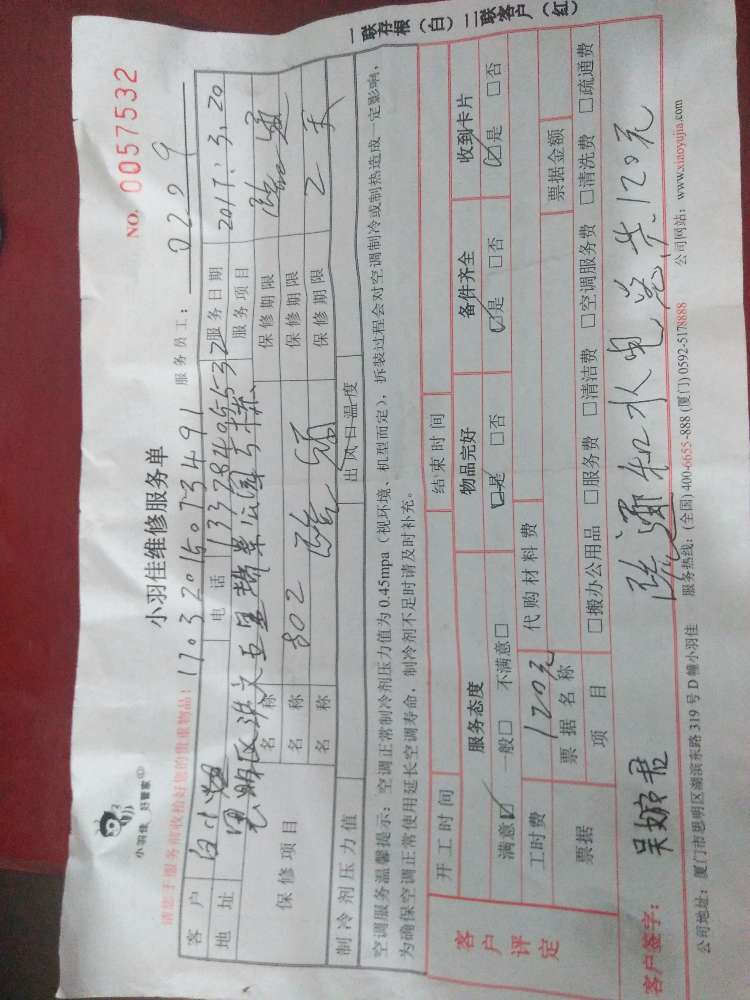 小羽佳 好管家
小羽佳维修服务单
NO. 0057532
请您于服务前收拾好您的贵重物品:
服务员工: 0229
客户 白小 电话 服务日期 2017.3.20
地址 思明区 服务项目 疏通
保修项目 名称 保修期限
名称 802 疏通 保修期限 2天
名称 保修期限
制冷剂压力值 出风口温度
空调服务温馨提示:空调正常制冷剂压力值为0.45mpa(视环境、机型而定),拆装过程会对空调制冷或制热造成一定影响,
为确保空调正常使用延长空调寿命,制冷剂不足时请及时补充。
客户评定
开工时间 结束时间
服务态度 物品完好 备件齐全 收到卡片
满意☑ 一般□ 不满意□ ☑是 □否 ☑是 □否 ☑是 □否
工时费 120元 代购材料费
票据 票据名称 票据金额
项目 □搬办公用品 □服务费 □清洁费 □空调服务费 □清洗费 □疏通费
客户签字: 疏通和水电 共120元
公司地址:厦门市思明区湖滨东路319号D幢小羽佳 服务热线:(全国)400-6655-888 (厦门)0592-5178888 公司网站:www.xiaoyujia.com
一联存根(白)二联客户(红)